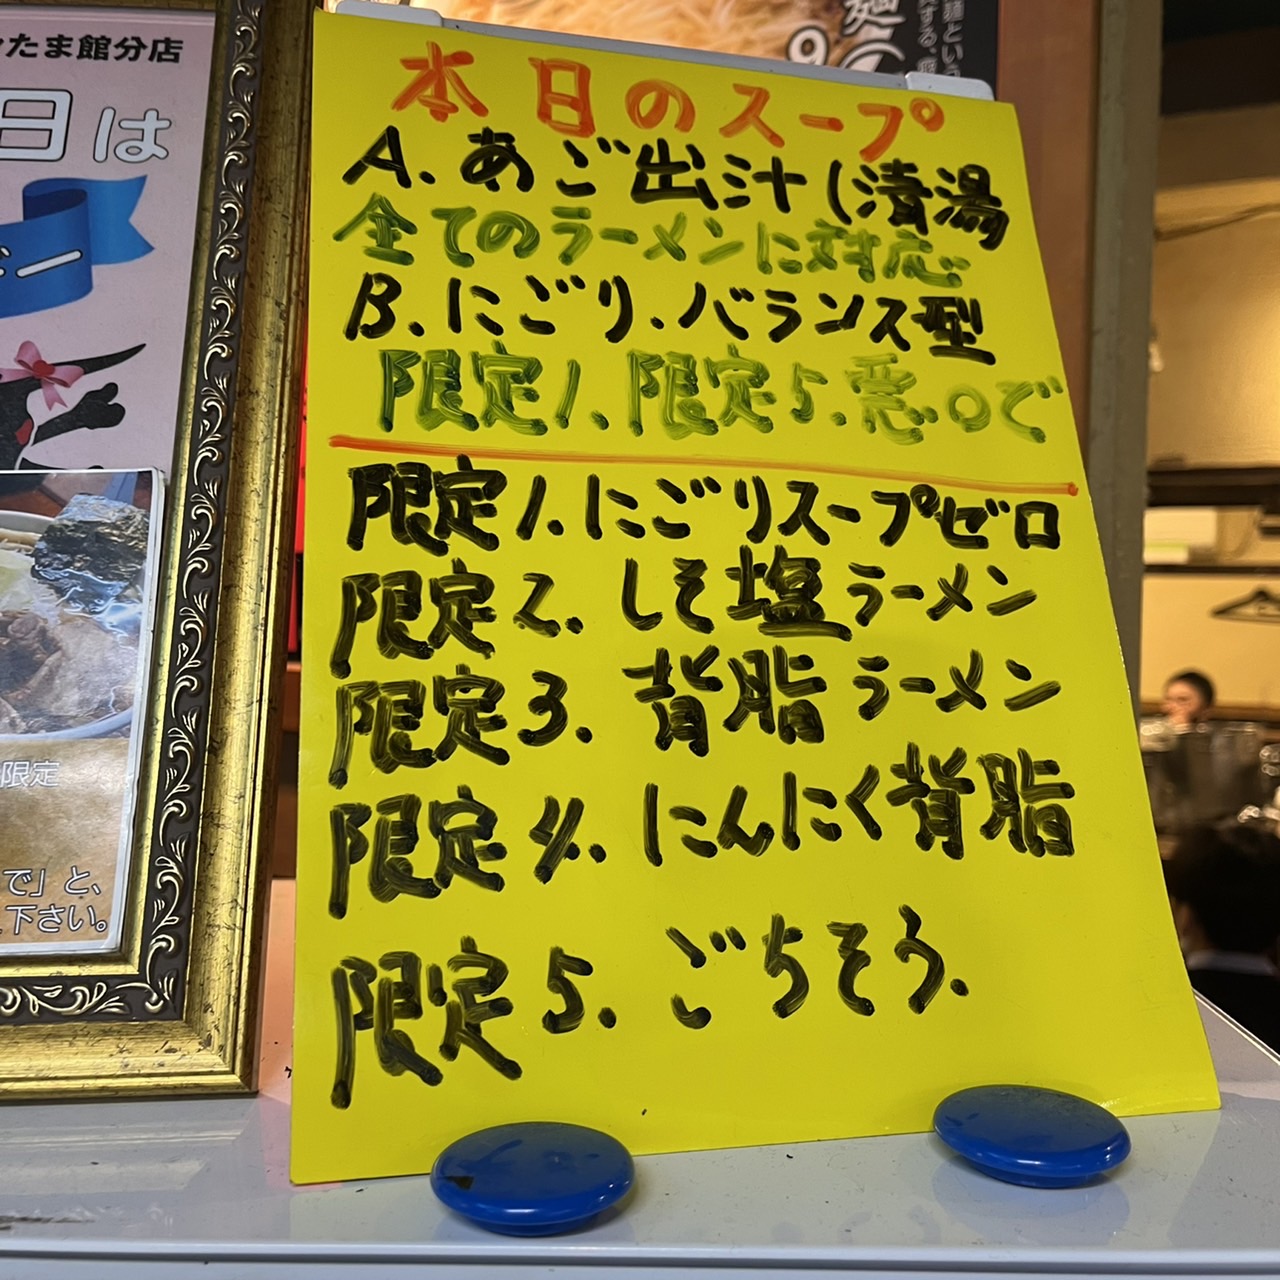 たま館分店
日は
ー
限定
で」と、
下さい。
本日のスープ
A. あご出汁(清湯
全てのラーメンに対応
B. にごり.バランス型
限定1.限定5.悪〇で
限定1.にごりスープゼロ
限定2. しそ塩ラーメン
限定3. 背脂ラーメン
限定4. にんにく背脂
限定5. ごちそう.
麺(